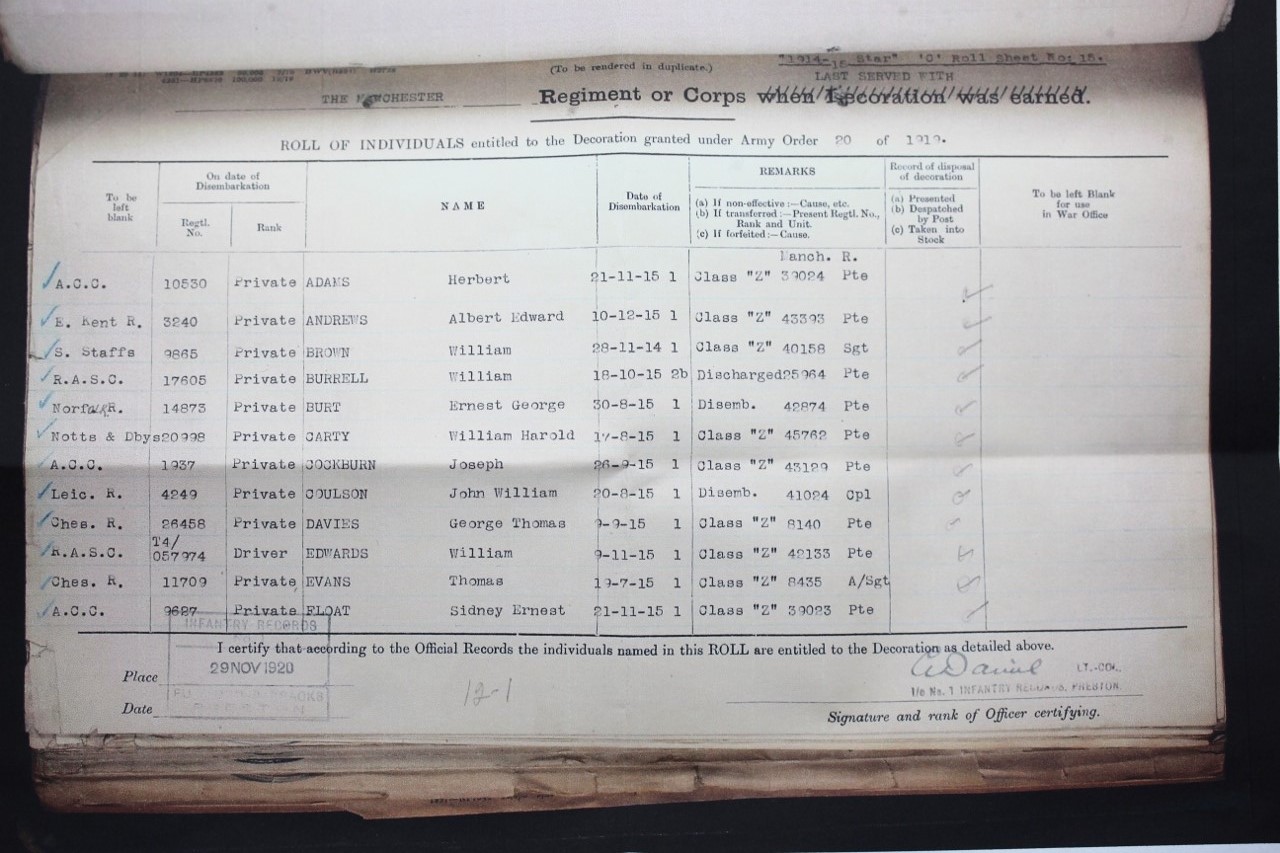 (To be rendered in duplicate.)
"1914-15 Star" 'O' Roll Sheet No: 15.
LAST SERVED WITH
THE MANCHESTER Regiment or Corps when Decoration was earned.
ROLL OF INDIVIDUALS entitled to the Decoration granted under Army Order 20 of 1919.
To be left blank
On date of Disembarkation
Regtl. No.
Rank
NAME
Date of Disembarkation
REMARKS
(a) If non-effective :—Cause, etc.
(b) If transferred :—Present Regtl. No., Rank and Unit.
(c) If forfeited :—Cause.
Record of disposal of decoration
(a) Presented
(b) Despatched by Post
(c) Taken into Stock
To be left Blank for use in War Office
Manch. R.
A.C.C. 10530 Private ADAMS Herbert 21-11-15 1 Class "Z" 39024 Pte
E. Kent R. 3240 Private ANDREWS Albert Edward 10-12-15 1 Class "Z" 43393 Pte
S. Staffs 9865 Private BROWN William 28-11-14 1 Class "Z" 40158 Sgt
R.A.S.C. 17605 Private BURRELL William 18-10-15 2b Discharged 25964 Pte
Norfolk R. 14873 Private BURT Ernest George 30-8-15 1 Disemb. 42874 Pte
Notts & Dbys 20998 Private CARTY William Harold 17-8-15 1 Class "Z" 45762 Pte
A.C.C. 1937 Private COCKBURN Joseph 26-9-15 1 Class "Z" 43129 Pte
Leic. R. 4249 Private COULSON John William 20-8-15 1 Disemb. 41024 Cpl
Ches. R. 26458 Private DAVIES George Thomas 9-9-15 1 Class "Z" 8140 Pte
R.A.S.C. T4/057974 Driver EDWARDS William 9-11-15 1 Class "Z" 42133 Pte
Ches. R. 11709 Private EVANS Thomas 19-7-15 1 Class "Z" 8435 A/Sgt
A.C.C. 9687 Private FLOAT Sidney Ernest 21-11-15 1 Class "Z" 39023 Pte
INFANTRY RECORDS
I certify that according to the Official Records the individuals named in this ROLL are entitled to the Decoration as detailed above.
29 NOV 1920
Place
Date
12-1
Daniel LT.-COL.
I/c No. 1 INFANTRY RECORDS, PRESTON.
Signature and rank of Officer certifying.